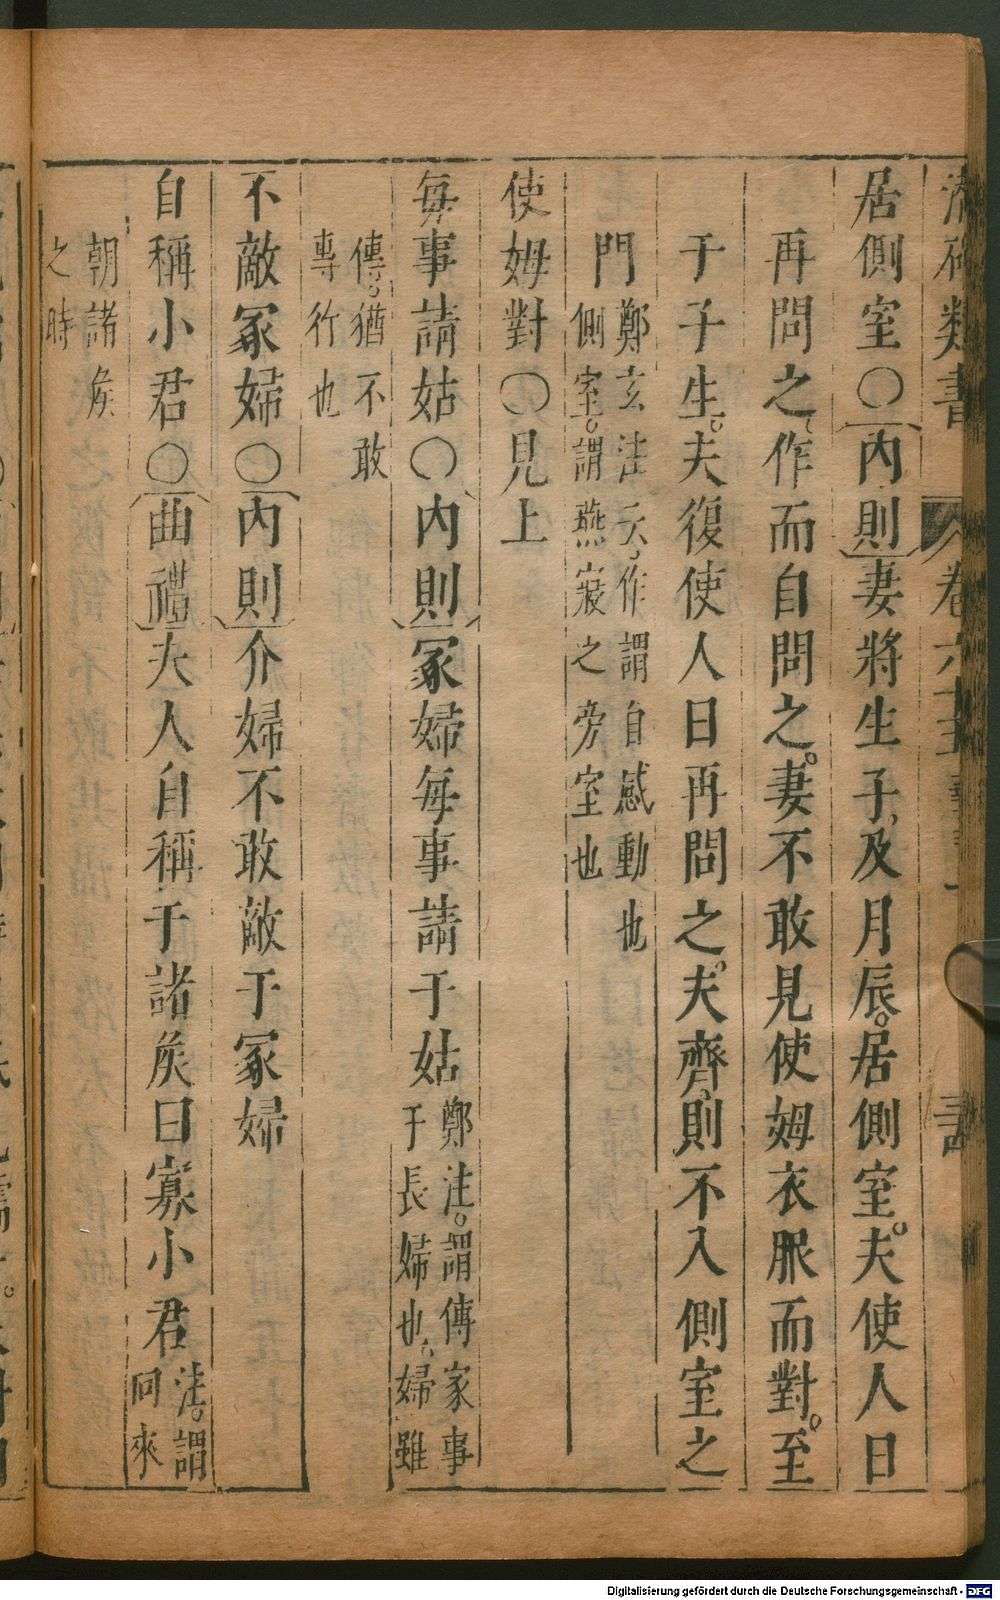 類書 卷六
居側室○內則妻將生子及月辰。居側室。夫使人日
再問之、作而自問之。妻不敢見使姆衣服而對。至
于子生。夫復使人日再問之。夫齊、則不入側室之
門鄭玄注云、作謂自感動也
側室。謂燕寢之旁室也
使姆對○見上
每事請姑○內則冢婦每事請于姑鄭注。謂傳家事
于長婦也、婦雖
傳。猶不敢
專行也
不敵冢婦○內則介婦不敢敵于冢婦
自稱小君○曲禮夫人自稱于諸矦曰寡小君注。謂
同來
朝諸矦
之時
Digitalisierung gefördert durch die Deutsche Forschungsgemeinschaft - DFG